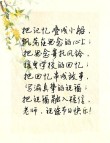 把记忆叠成小船，
飘荡在思念的心上；
把思念寄托风铃，
把回忆寄成故事，
写满真挚的祝福；
把祝福融入短信，
老师，祝您节日快乐！